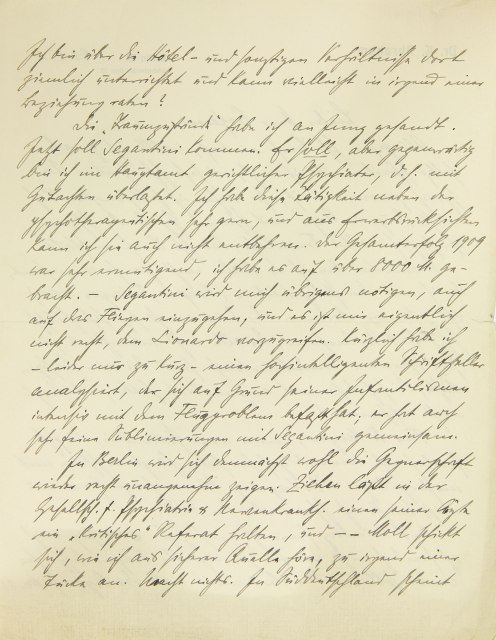 Ich bin über die Hôtel- und sonstigen Verhältnisse dort
ziemlich unterrichtet und kann vielleicht in irgend einer
Beziehung raten?
Die „Traumzustände“ habe ich an Jung gesandt.
Jetzt soll Segantini kommen. Er soll, aber gegenwärtig
bin ich im Hauptamt gerichtlicher Psychiater, d. h. mit
Gutachten überlastet. Ich habe diese Tätigkeit neben der
psychotherapeutischen sehr gern, und aus Erwerbsrücksichten
kann ich sie auch nicht entbehren. Der Gesamterfolg 1909
war sehr ermutigend, ich habe es auf über 8000 M. ge-
bracht. – Segantini wird mich übrigens nötigen, auch
auf das Fliegen einzugehen, und es ist mir eigentlich
nicht recht, dem Lionardo vorzugreifen. Kürzlich habe ich
– leider nur zu kurz – einen hochintelligenten Schriftsteller
analysiert, der sich auf Grund seiner Infantilismen
intensiv mit dem Flugproblem befaßt hat; er hat auch
sehr feine Sublimierungen mit Segantini gemeinsam.
In Berlin wird sich demnächst wohl die Gegnerschaft
wieder recht unangenehm zeigen. Ziehen läßt in der
Gesellsch. f. Psychiatrie & Nervenkrankh. einen seiner
ein „kritisches“ Referat halten, und – – Moll schickt
sich, wie ich aus sicherer Quelle höre, zu irgend einer
Tücke an. Macht nichts. In Süddeutschland scheint